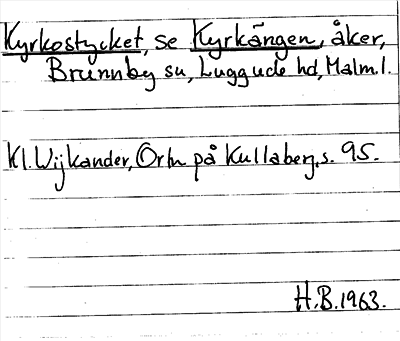 Kyrkostycket, se Kyrkängen, åker,
Brunnby sn, Luggude hd, Malm.l.
Kl. Wijkander, Ortn på Kullaberg, s. 95.
H.B. 1963.